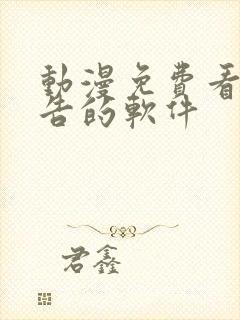 動漫免費看
告的軟件
君鑫